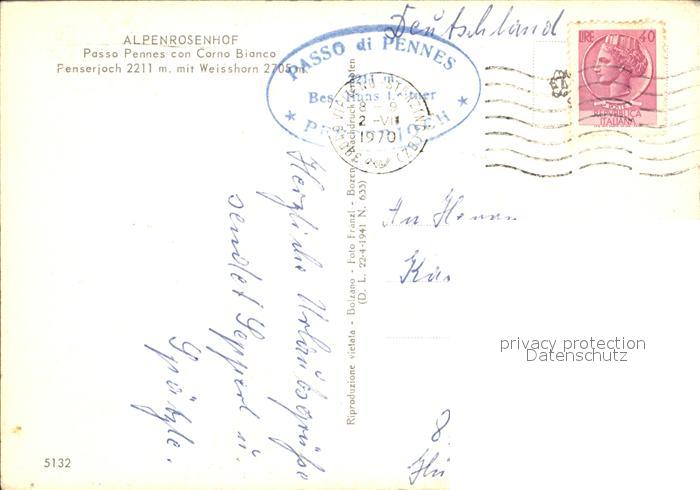 ALPENROSENHOF
Passo Pennes con Corno Bianco
Penserjoch 2211 m. mit Weisshorn 2705 m.
Deutschland
PASSO di PENNES
2211 m
Bes. Hans
8 - 9
2 - VII
1970
LIRE 40
REPVBBLICA
ITALIANA
Herzliche Urlaubsgrüße
sendet Sepperl u.
An Herrn
8
Riproduzione vietata - Bolzano - Foto Franzl - Bozen - Nachdruck verboten
(D. L. 22-4-1941 N. 633)
privacy protection
Datenschutz
5132